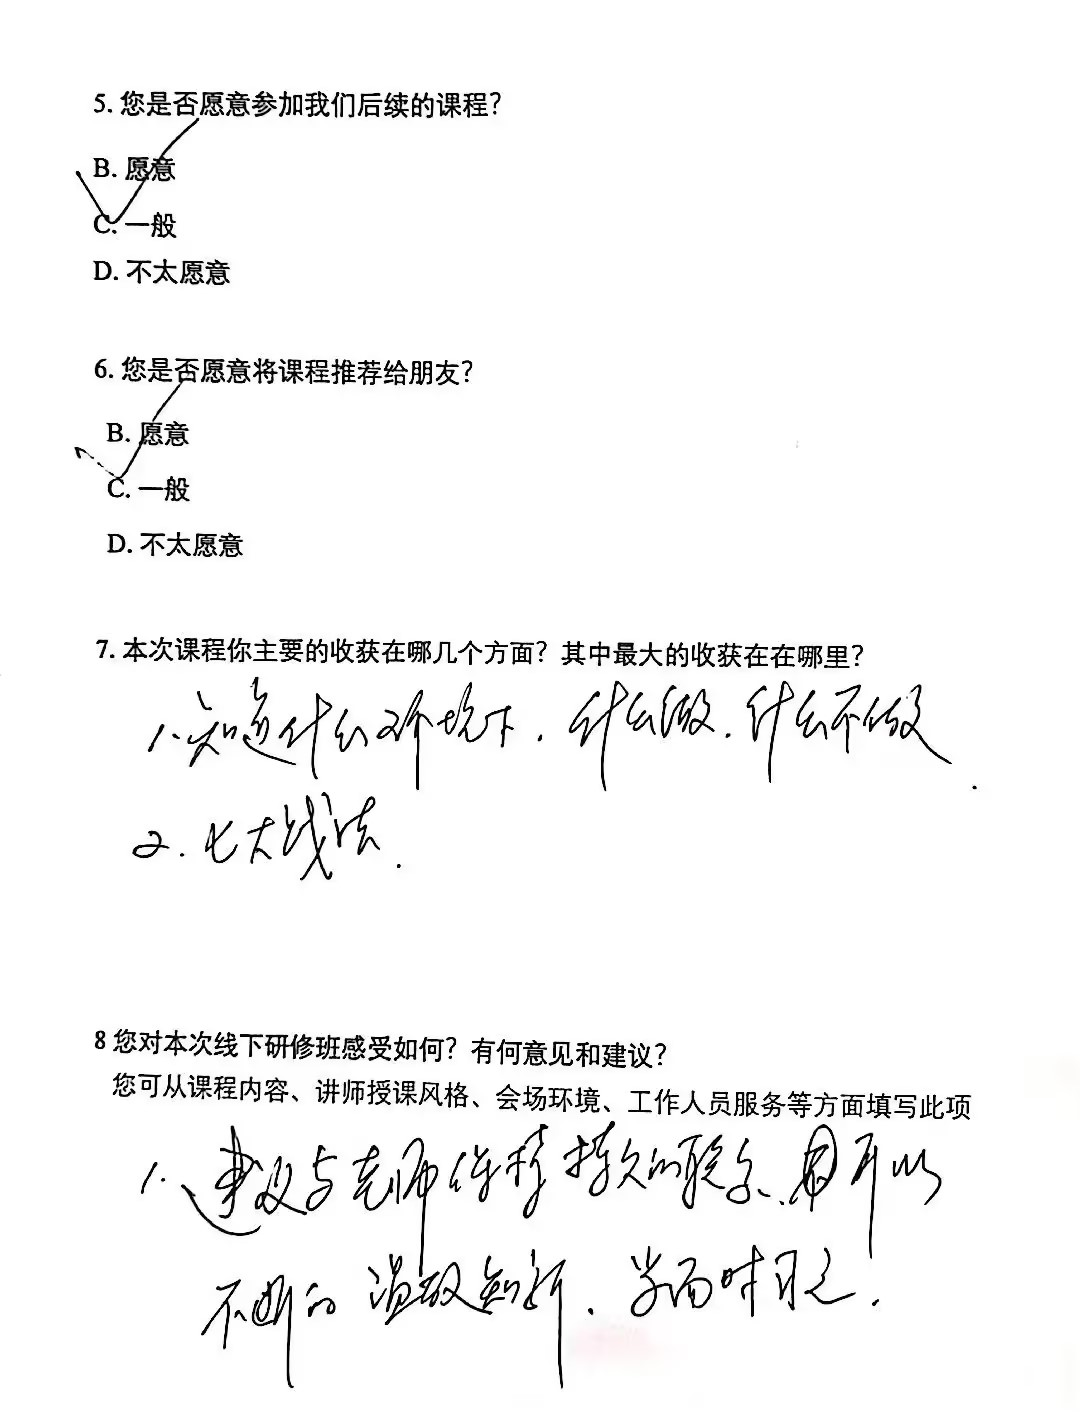 5. 您是否愿意参加我们后续的课程?
B. 愿意
C. 一般
D. 不太愿意
6. 您是否愿意将课程推荐给朋友?
B. 愿意
C. 一般
D. 不太愿意
7. 本次课程你主要的收获在哪几个方面? 其中最大的收获在在哪里?
1. 知道什么环境下. 什么做. 什么不做.
2. 七大战法.
8 您对本次线下研修班感受如何? 有何意见和建议?
您可从课程内容、讲师授课风格、会场环境、工作人员服务等方面填写此项
1. 建议与老师保持持久的联系、可以
不断的温故知新. 学而时习之.